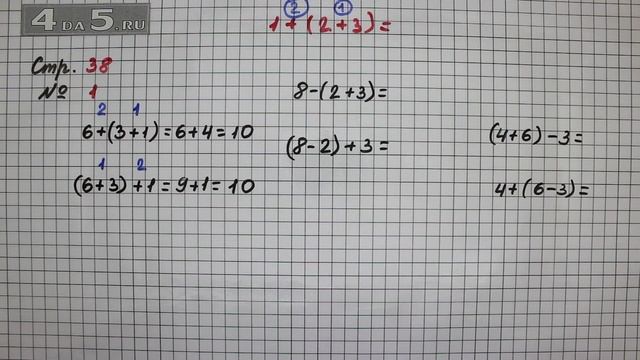 4 DA 5.RU
2 1
1+(2+3)=
Стр. 38
№ 1
2 1
6+(3+1)=6+4=10
1 2
(6+3)+1=9+1=10
8-(2+3)=
(8-2)+3=
(4+6)-3=
4+(6-3)=